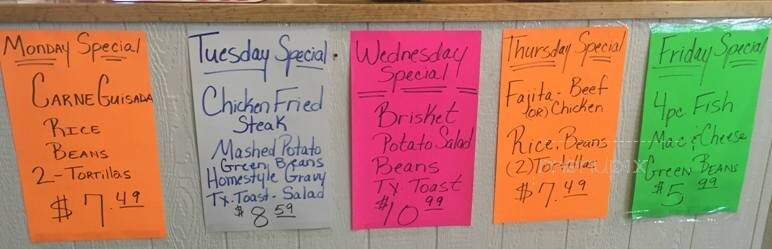 Monday Special
Carne Guisada
Rice
Beans
2 - Tortillas
$7.49
Tuesday Special
Chicken Fried
Steak
Mashed Potato
Green Beans
Homestyle Gravy
Tx. Toast - Salad
$8.59
Wednesday
Special
Brisket
Potato Salad
Beans
Tx Toast
$10.99
Thursday Special
Fajita - Beef
(or) Chicken
Rice, Beans
(2) Tortillas
$7.49
Friday Special
4pc Fish
Mac & Cheese
Green Beans
$5.99